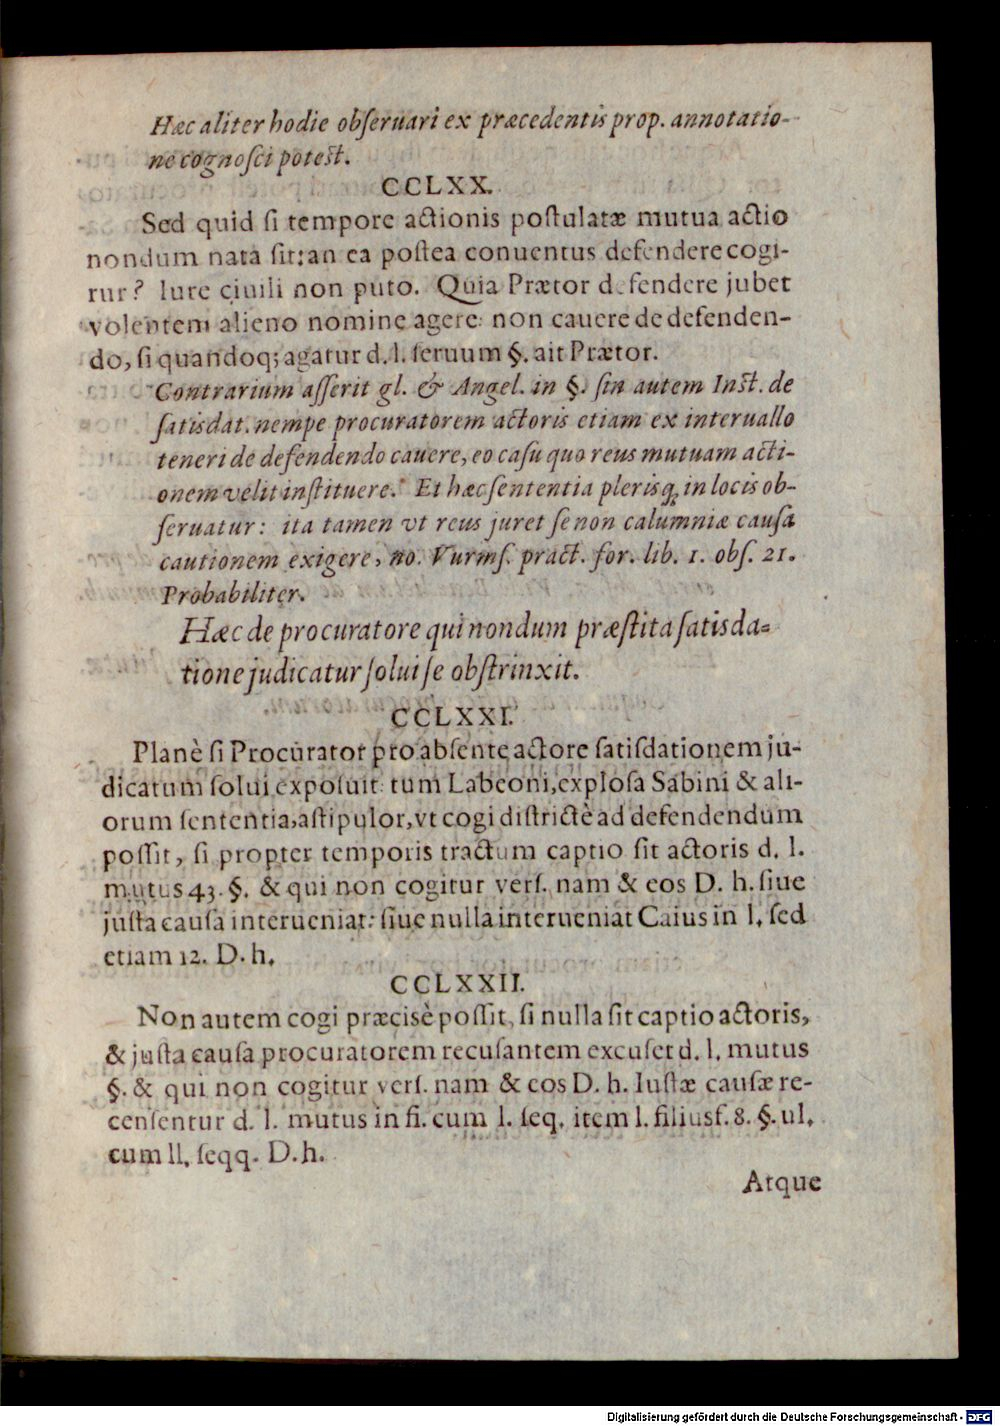 Hæc aliter hodie obſeruari ex præcedentis prop. annotatio-
ne cognoſci poteſt.
CCLXX.
Sed quid ſi tempore actionis poſtulatæ mutua actio
nondum nata ſit: an ea poſtea conuentus defendere cogi-
tur? Iure ciuili non puto. Quia Prætor defendere jubet
volentem alieno nomine agere: non cauere de defenden-
do, ſi quandoq; agatur d. l. ſeruum §. ait Prætor.
Contrarium aſſerit gl. & Angel. in §. ſin autem Inſt. de
ſatisdat. nempe procuratorem actoris etiam ex interuallo
teneri de defendendo cauere, eo caſu quo reus mutuam acti-
onem velit inſtituere. Et hæc ſententia plerisq; in locis ob-
ſeruatur: ita tamen vt reus juret ſe non calumniæ cauſa
cautionem exigere, no. Vurmſ. pract. for. lib. 1. obſ. 21.
Probabiliter.
Hæc de procuratore qui nondum præſtita ſatisda-
tione judicatur ſolui ſe obſtrinxit.
CCLXXI.
Planè ſi Procurator pro abſente actore ſatiſdationem ju-
dicatum ſolui expoſuit: tum Labeoni, exploſa Sabini & ali-
orum ſententia, aſtipulor, vt cogi diſtrictè ad defendendum
poſſit, ſi propter temporis tractum captio ſit actoris d. l.
mutus 43. §. & qui non cogitur verſ. nam & eos D. h. ſiue
juſta cauſa interueniat: ſiue nulla interueniat Caius in l. ſed
etiam 12. D. h.
CCLXXII.
Non autem cogi præcisè poſſit, ſi nulla ſit captio actoris,
& juſta cauſa procuratorem recuſantem excuſet d. l. mutus
§. & qui non cogitur verſ. nam & eos D. h. Iuſtæ cauſæ re-
cenſentur d. l. mutus in fi. cum l. ſeq. item l. filiusf. 8. §. ul.
cum ll. ſeqq. D. h.
Atque
Digitalisierung gefördert durch die Deutsche Forschungsgemeinschaft - DFG